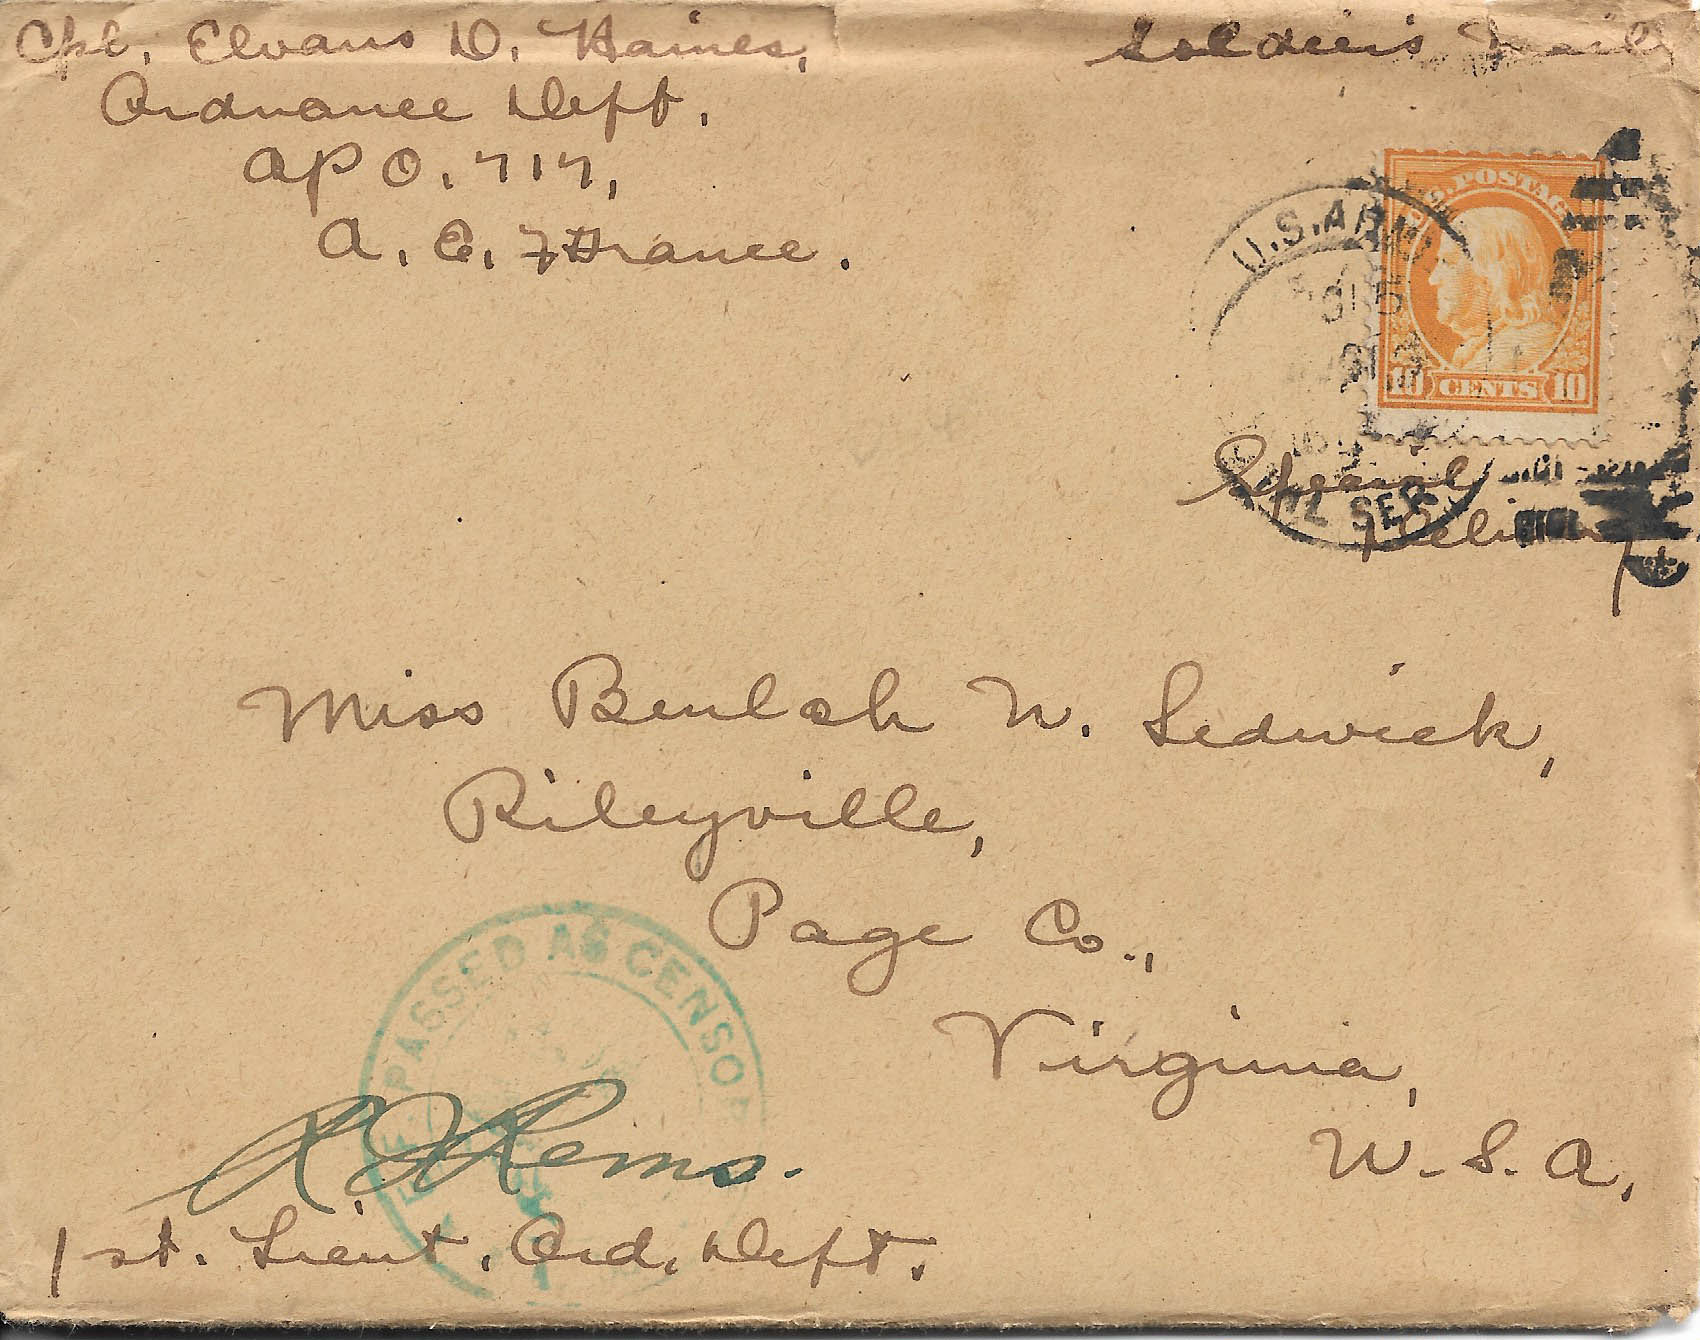 Cpl. Elvans D. Haines,
Ordnance Dept.
APO. 717,
A. E. F. France.
Soldier's Mail
U.S. POSTAGE
10 CENTS 10
U.S. ARMY
SER
Special
Delivery
Miss Beulah W. Sedwick,
Rileyville,
Page Co.,
Virginia,
U. S. A.
PASSED AS CENSO
1st. Lieut. Ord. Dept.